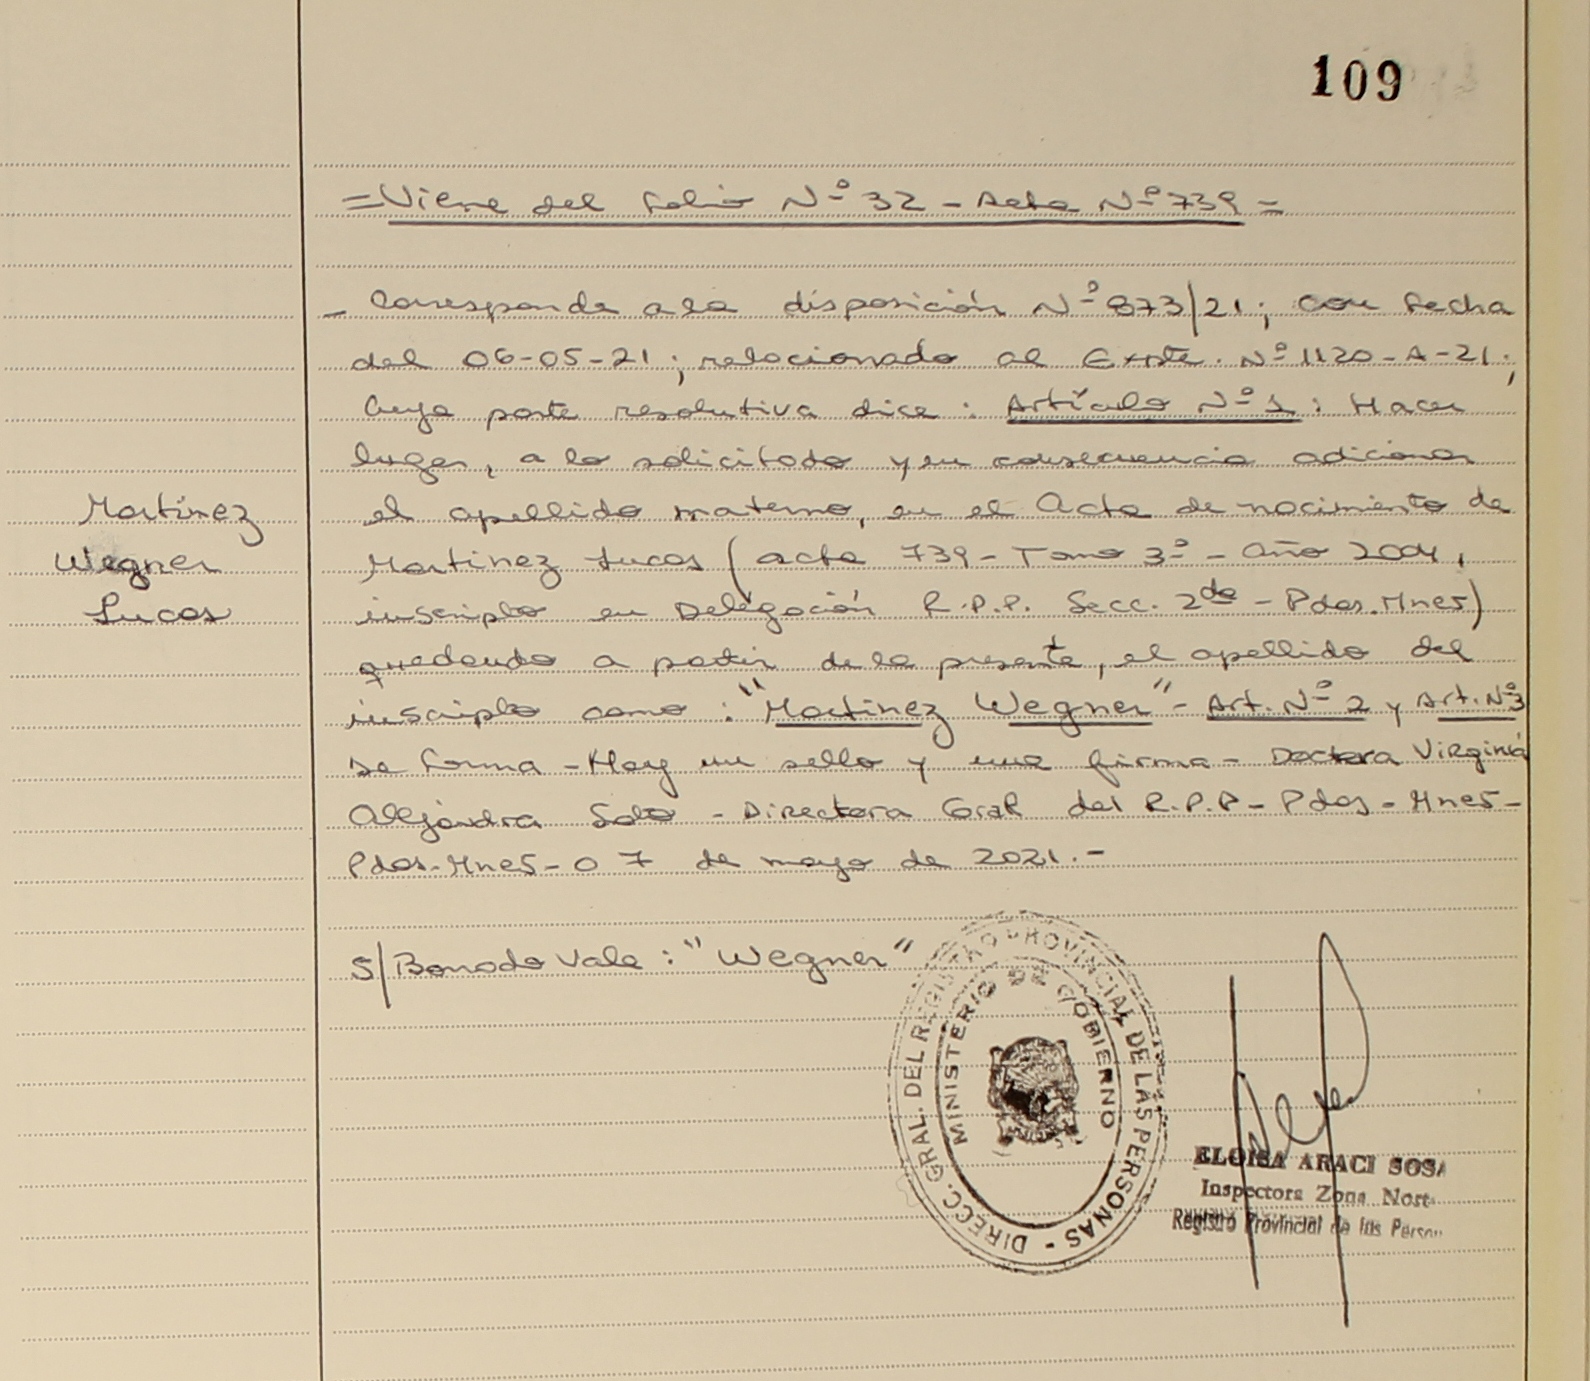 109
=Viene del Folio Nº 32 - Acta Nº 739=
- Corresponde a la disposición Nº 873/21; con fecha
del 06-05-21; relacionado al Expte. Nº 1120-A-21;
Cuya parte resolutiva dice: Artículo Nº 1: Hacer
lugar, a lo solicitado y en consecuencia adicionar
el apellido materno, en el Acta de nacimiento de
Martinez Lucas (acta 739 - Tomo 3º - Año 2004,
inscripto en Delegación R.P.P. Secc. 2da - Pdas. Mnes)
quedando a partir de la presente, el apellido del
inscripto como: "Martinez Wegner" - Art. Nº 2 y Art. Nº3
de forma - Hay un sello y una firma - Doctora Virginia
Alejandra Soto - Directora Gral del R.P.P - Pdas - Mnes -
Pdas. Mnes - 07 de mayo de 2021.-
Martinez
Wegner
Lucas
S/Borrado Vale: "Wegner"
DIRECC. GRAL. DEL REGISTRO PROVINCIAL DE LAS PERSONAS -
MINISTERIO DE GOBIERNO
ELOISA ARACI SOSA
Inspectora Zona Nort
Registro Provincial de las Person